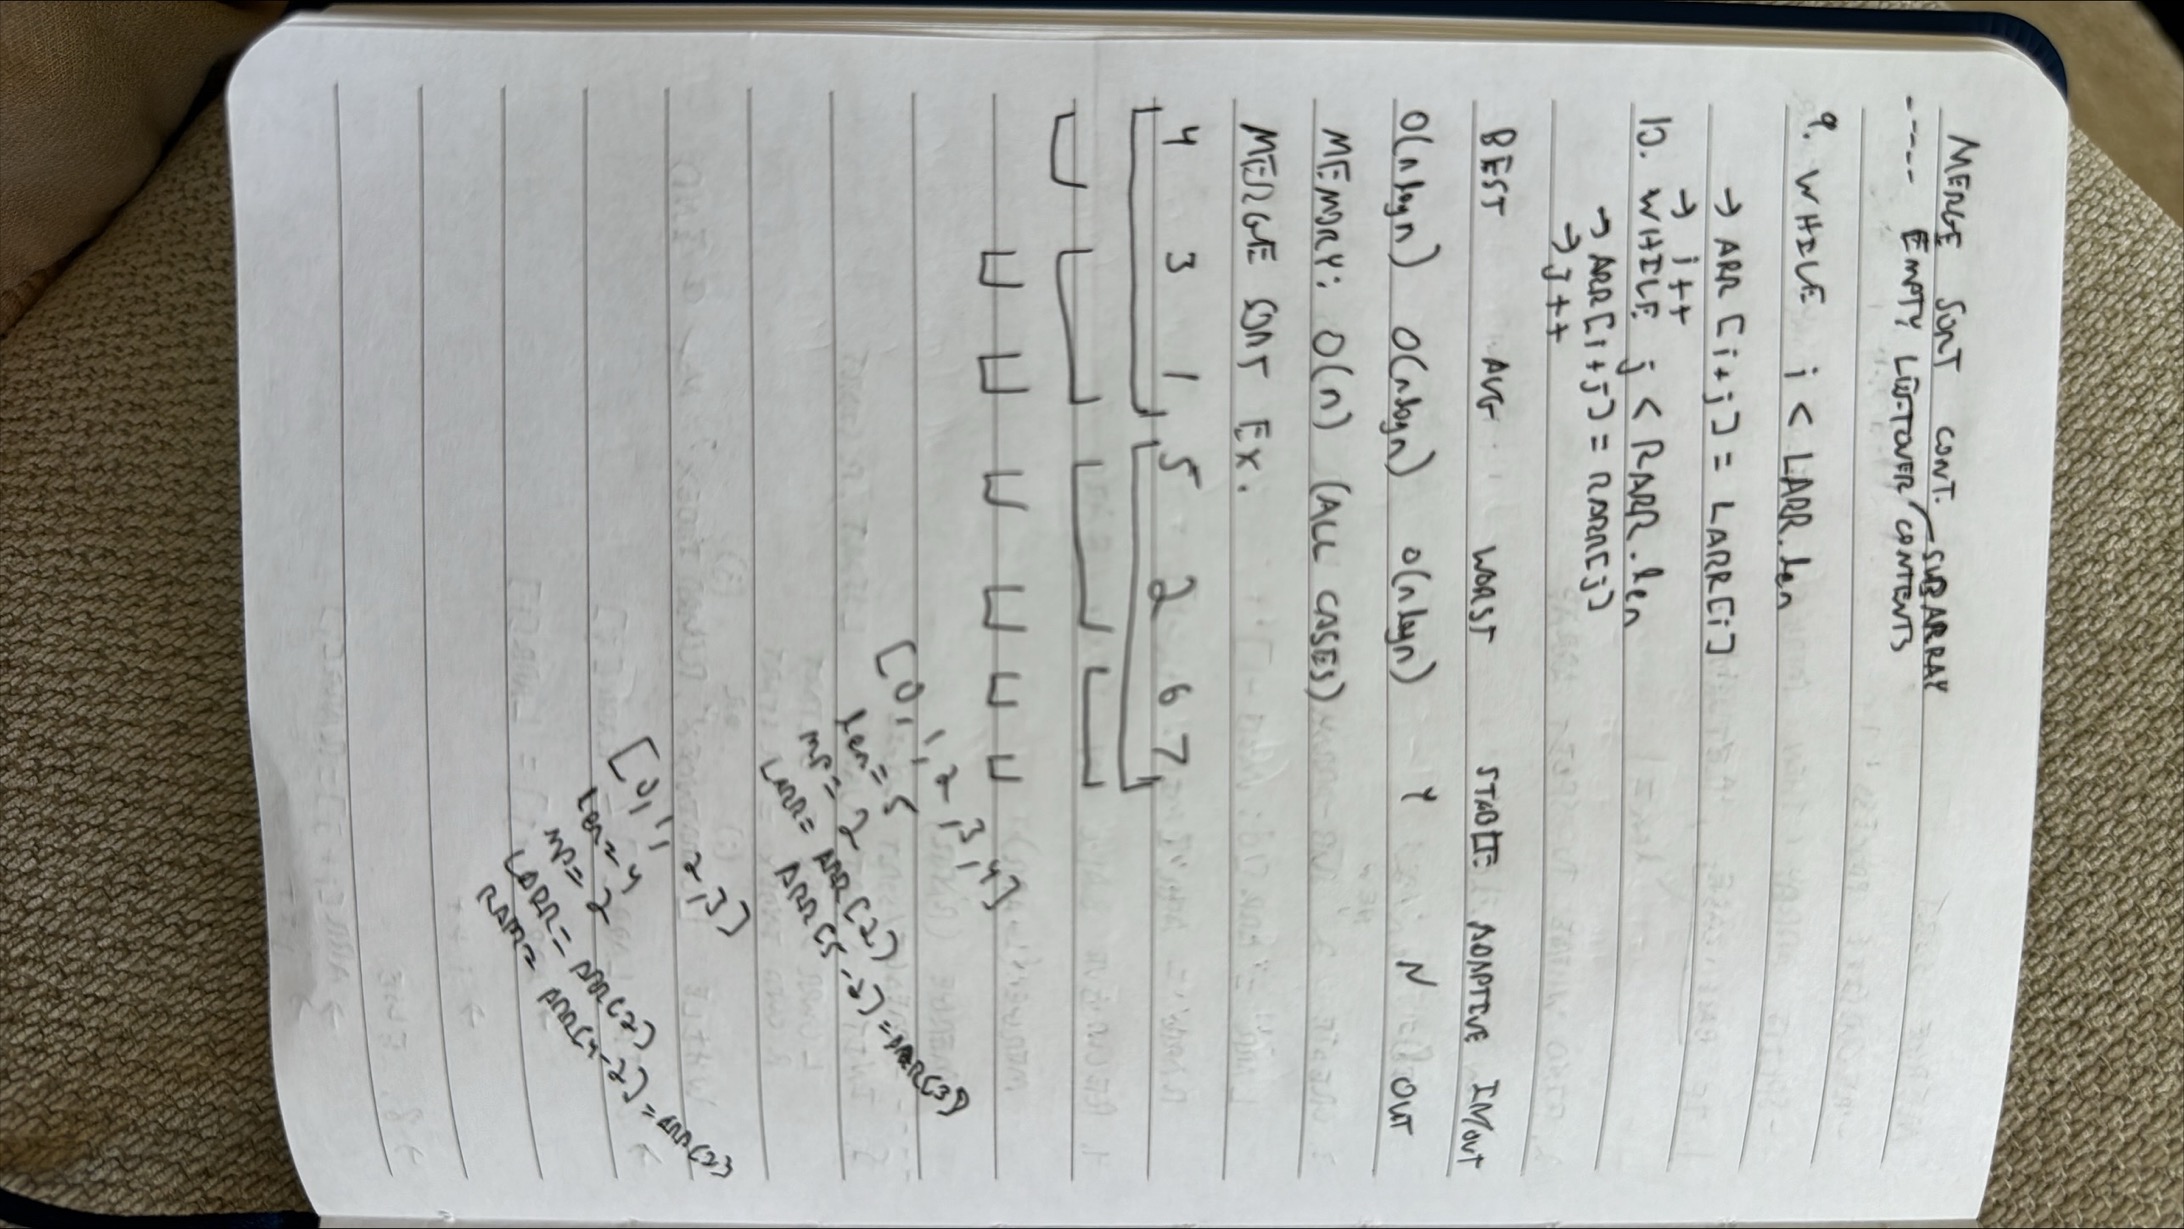 MERGE SORT CONT.
---- EMPTY LEFTOVER SUBARRAY CONTENTS
9. WHILE i < LARR.len
→ ARR[i+j] = LARR[i]
→ i++
10. WHILE j < RARR.len
→ ARR[i+j] = RARR[j]
→ j++
BEST AVG WORST STABLE ADAPTIVE IN/OUT
O(nlogn) O(nlogn) O(nlogn) Y N OUT
MEMORY: O(n) (ALL CASES)
MERGE SORT EX.
4 3 1 5 2 6 7
[0, 1, 2, 3, 4]
len = 5
mp = 2
LARR = ARR[2]
ARR[5-2] = ARR[3]
[0, 1, 2, 3]
len = 4
mp = 2
LARR = ARR[2]
RARR = ARR[4-2] = ARR[2]